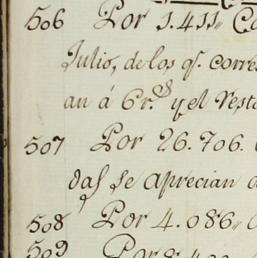 506 Por 1.411,, Ca
Julio, de los q.e corres
an á 6 r.s y el resto
507 Por 26.706.
das se aprecian a
508 Por 4.086,,
509 Por 8.400